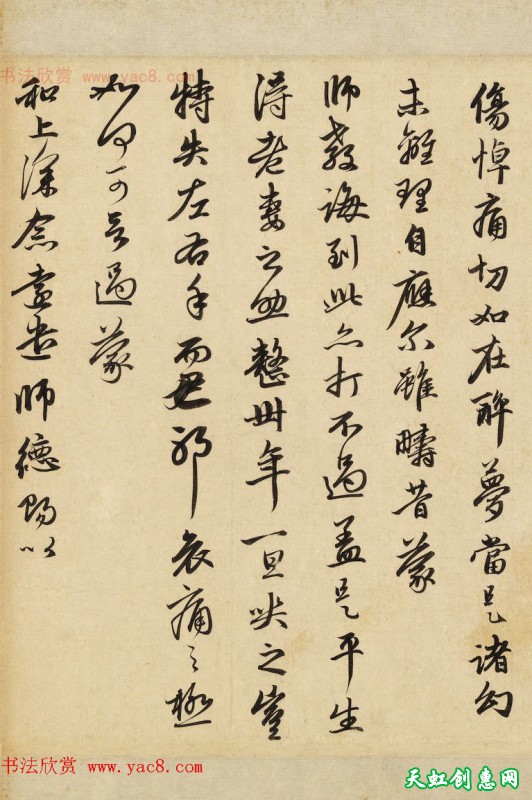 傷悼痛切如在醉夢當是諸幻
未離理自應尔雖疇昔蒙
師教誨到此亦打不過盖是平生
得老妻之助整卅年一旦哭之豈
特失左右手而已耶哀痛之極
如何可言過蒙
和上深念遠遣師德賜以
书法欣赏 www.yac8.com
书法欣赏 www.yac8.com
天虹创惠网